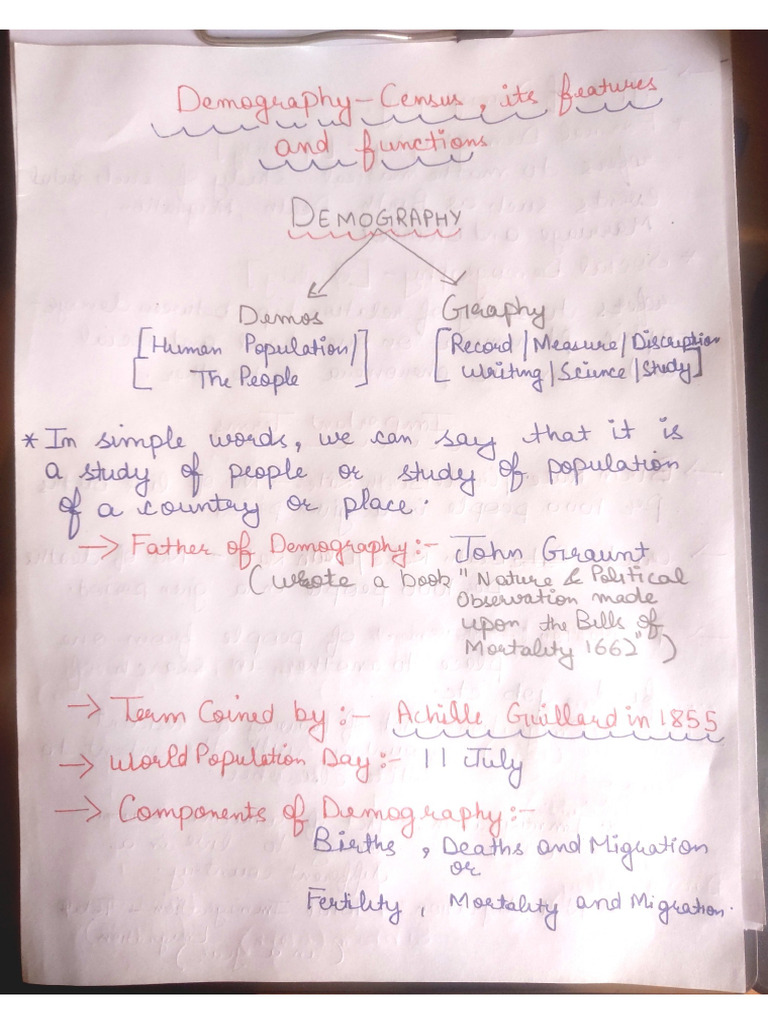 Demography - Census, its features
and functions
DEMOGRAPHY
Demos Graphy
[Human Population/ [Record/Measure/Discription
The People] Writing/Science/Study]
* In simple words, we can say that it is
a study of people or study of population
of a country or place.
→ Father of Demography:- John Graunt
(wrote a book "Nature & Political
Observation made
upon the Bills of
Mortality 1662")
→ Term Coined by:- Achille Guillard in 1855
→ World Population Day:- 11 July
→ Components of Demography:-
Births, Deaths and Migration
or
Fertility, Mortality and Migration.